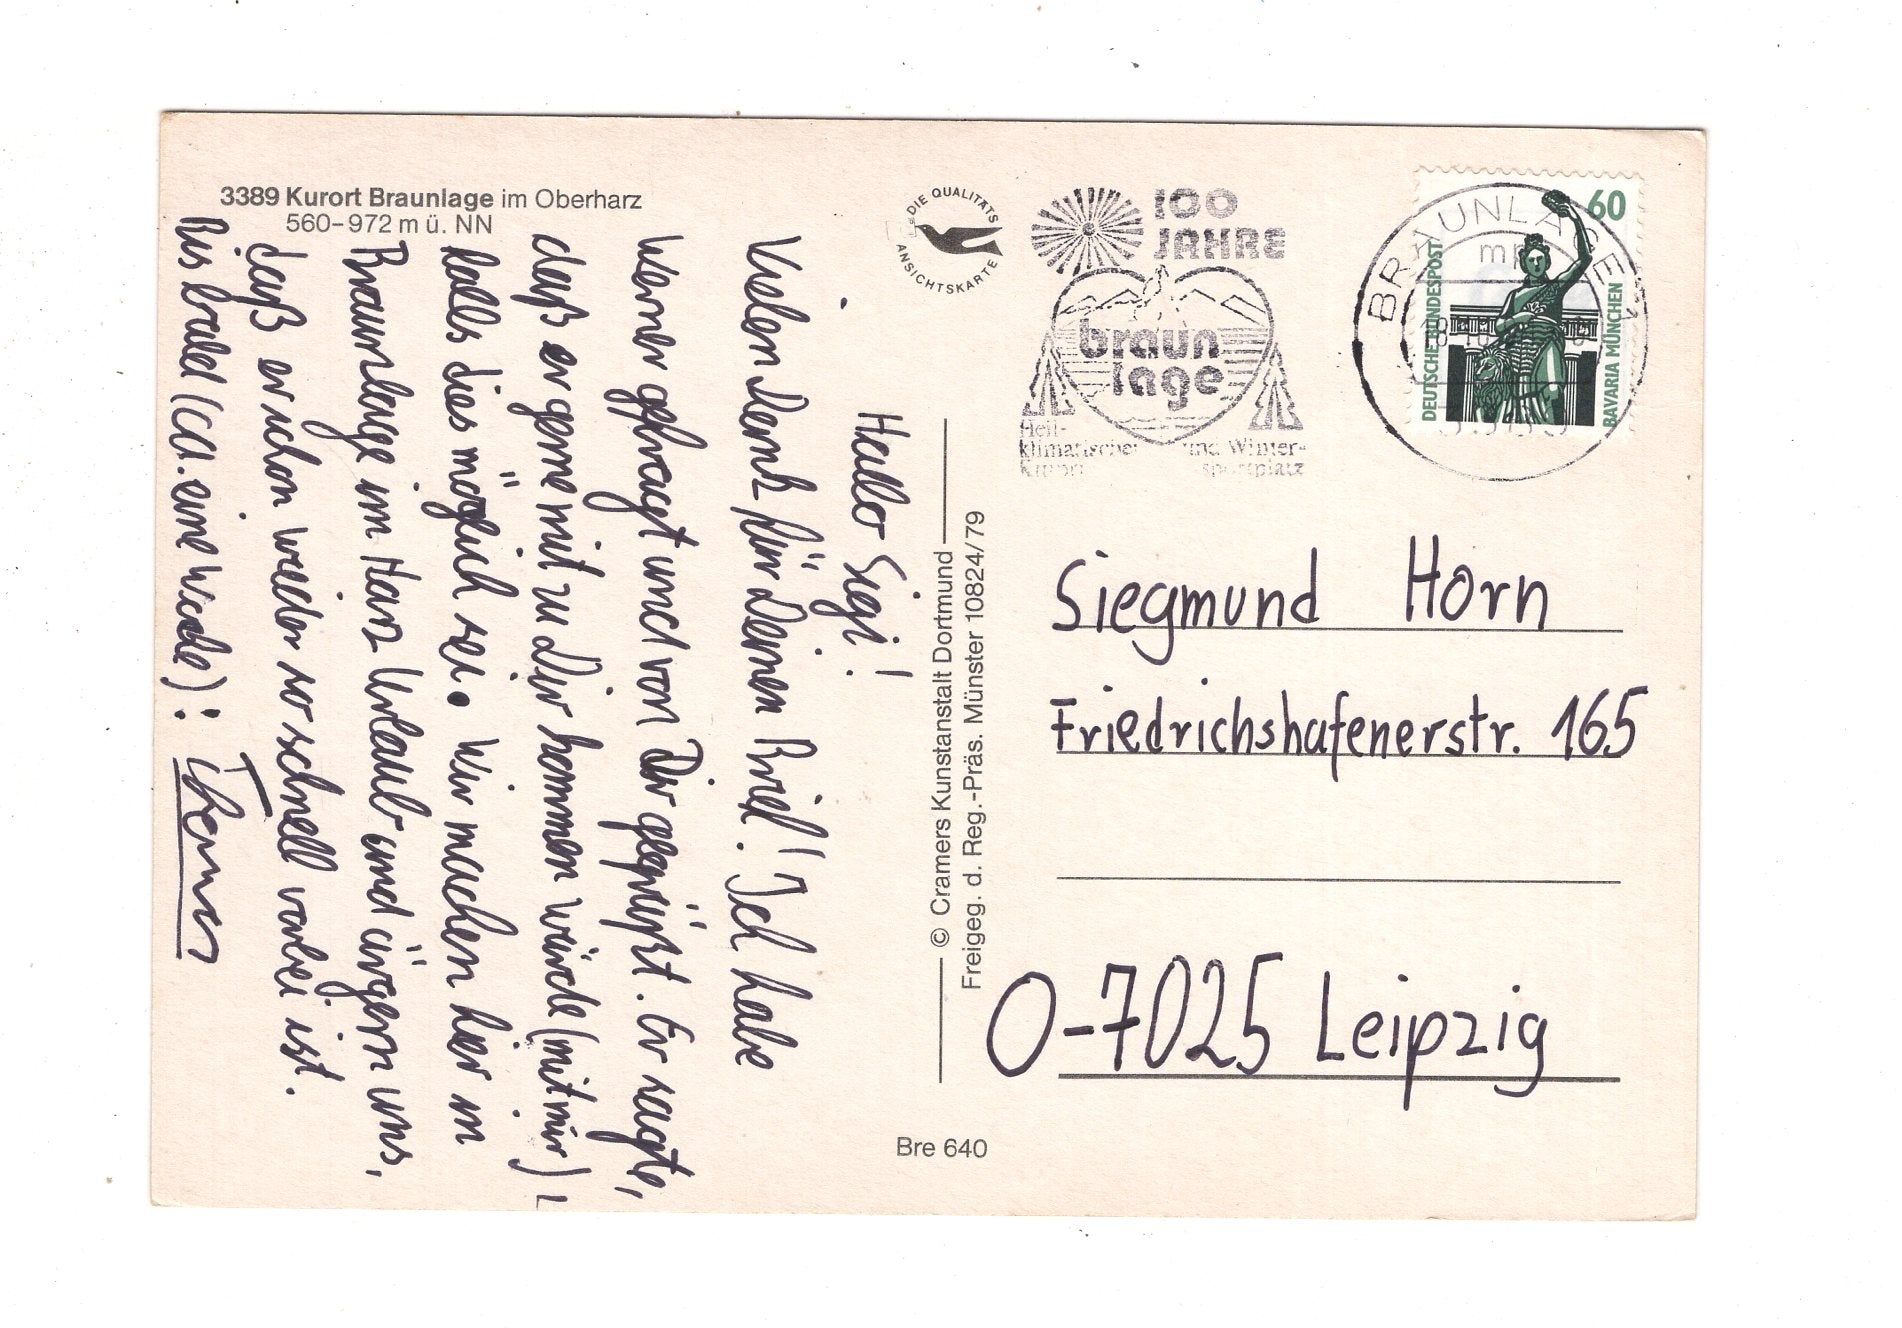 3389 Kurort Braunlage im Oberharz
560-972 m ü. NN
DIE QUALITÄTS
ANSICHTSKARTE
100
JAHRE
braun
lage
Heil-
klimatischer und Winter-
Kurort sportplatz
BRAUNLAGE 1
mp
18
3389
60
DEUTSCHE BUNDESPOST
BAVARIA MÜNCHEN
Hallo Sigi!
Vielen Dank für Deinen Brief! Ich habe
Werner gefragt und von Dir gegrüßt. Er sagte,
daß er gerne mit zu Dir kommen würde (mit mir),
falls dies möglich sei. Wir machen hier in
Braunlage im Harz Urlaub und ärgern uns,
daß er schon wieder so schnell vorbei ist.
Bis bald (ca. eine Woche): Thomas
© Cramers Kunstanstalt Dortmund
Freigeg. d. Reg.-Präs. Münster 10824/79
Siegmund Horn
Friedrichshafenerstr. 165
O-7025 Leipzig
Bre 640